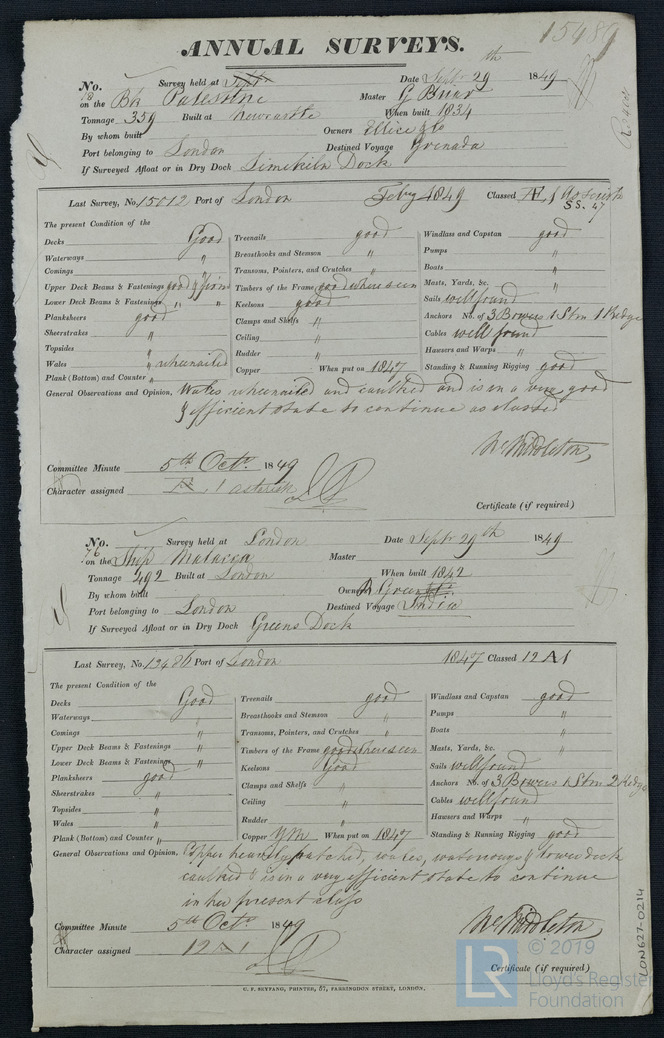 15489
ANNUAL SURVEYS.
No. 78 Survey held at Date Septr 29th 1849
on the Bk Palestine Master G
Tonnage 359 Built at Newcastle When built 1834
By whom built Owners Ellice & Co
Port belonging to London Destined Voyage Grenada
If Surveyed Afloat or in Dry Dock Limekiln Dock
Last Survey, No. 15012 Port of London Feby 1849 Classed Æ 1
SS. 47
The present Condition of the
Decks Good Treenails good Windlass and Capstan good
Waterways " Breasthooks and Stemson " Pumps "
Comings " Transoms, Pointers, and Crutches " Boats "
Upper Deck Beams & Fastenings good & firm Timbers of the Frame good where seen Masts, Yards, &c. "
Lower Deck Beams & Fastenings " " Keelsons good Sails well found
Planksheers good Clamps and Shelfs " Anchors No. of 3 Bowers 1 Strm 1 Kedge
Sheerstrakes " Ceiling " Cables well found
Topsides Rudder " Hawsers and Warps "
Wales " Copper When put on 1847 Standing & Running Rigging good
Plank (Bottom) and Counter "
General Observations and Opinion, Wales and caulked and is in a very good
& efficient state to continue as classed
Wm Middleton
Committee Minute 5th Octr 1849
Character assigned Æ 1 asterisk
Certificate (if required)
No. 76 Survey held at London Date Septr 29th 1849
on the Ship Malacca Master
Tonnage 492 Built at London When built 1842
By whom built Owners R Green
Port belonging to London Destined Voyage India
If Surveyed Afloat or in Dry Dock Greens Dock
Last Survey, No. 13486 Port of London 1847 Classed 12 A1
The present Condition of the
Decks Good Treenails good Windlass and Capstan good
Waterways " Breasthooks and Stemson " Pumps "
Comings " Transoms, Pointers, and Crutches " Boats "
Upper Deck Beams & Fastenings " Timbers of the Frame good where seen Masts, Yards, &c. "
Lower Deck Beams & Fastenings " Keelsons Good Sails well found
Planksheers good Clamps and Shelfs " Anchors No. of 3 Bowers 1 Strm 2 Kedge
Sheerstrakes " Ceiling " Cables well found
Topsides " Rudder " Hawsers and Warps "
Wales " Copper YM When put on 1847 Standing & Running Rigging good
Plank (Bottom) and Counter "
General Observations and Opinion, Copper heavily patched, wales, waterways & lower deck
caulked & is in a very efficient state to continue
in her present class
Committee Minute 5th Octr 1849 Wm Middleton
Character assigned 12 A 1
Certificate (if required)
C. F. SEYFANG, PRINTER, 57, FARRINGDON STREET, LONDON.
LON627-0214
LR © 2019
Lloyd's Register
Foundation